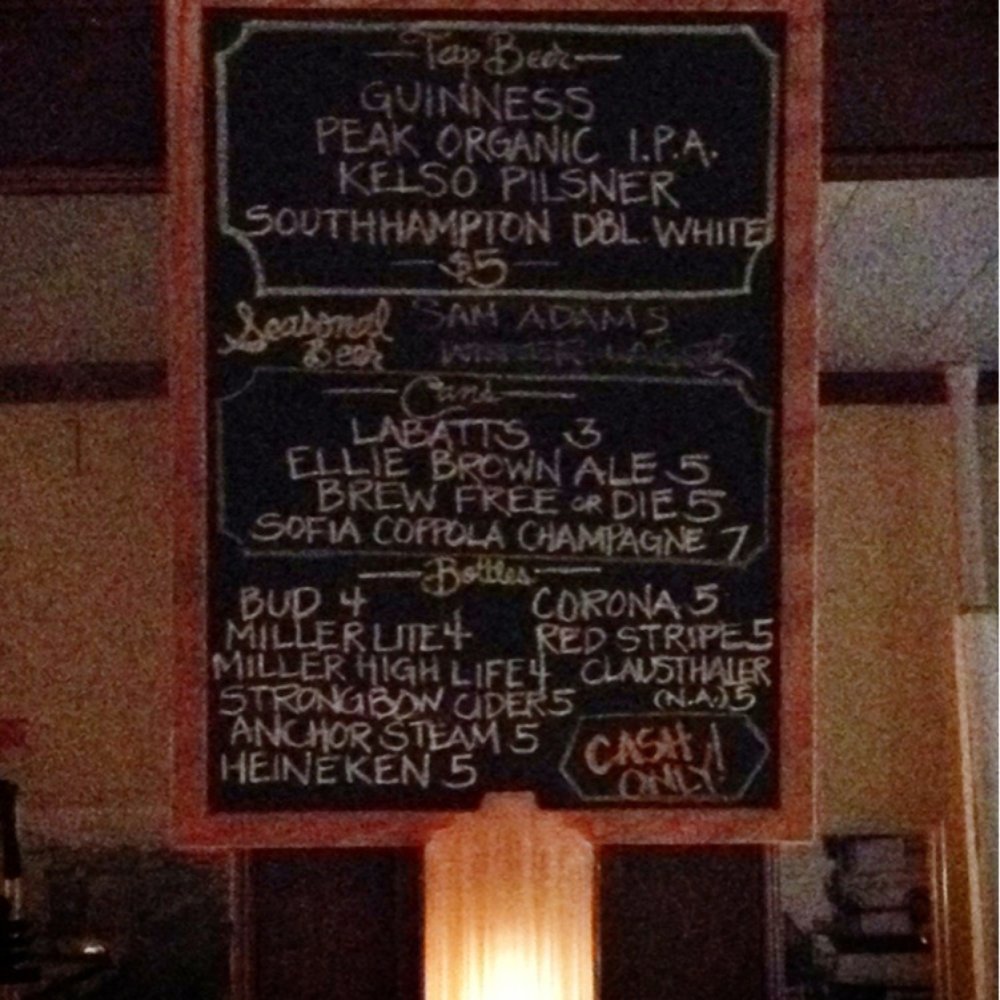 Tap Beer
GUINNESS
PEAK ORGANIC I.P.A.
KELSO PILSNER
SOUTHHAMPTON DBL. WHITE
$5
Seasonal Beer
SAM ADAMS
WINTER LAGER
Cans
LABATTS 3
ELLIE BROWN ALE 5
BREW FREE OR DIE 5
SOFIA COPPOLA CHAMPAGNE 7
Bottles
BUD 4
MILLER LITE 4
MILLER HIGH LIFE 4
STRONGBOW CIDER 5
ANCHOR STEAM 5
HEINEKEN 5
CORONA 5
RED STRIPE 5
CLAUSTHALER
(N.A.) 5
CASH
ONLY!